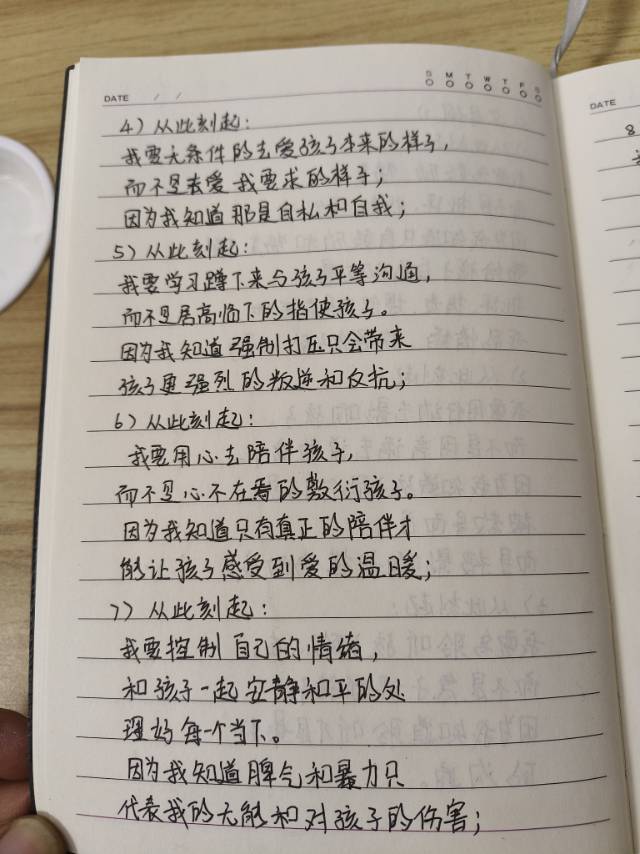 S M T W T F S
DATE / /
4) 从此刻起：
我要无条件的去爱孩子本来的样子，
而不是去爱我要求的样子；
因为我知道那是自私和自我；
5) 从此刻起：
我要学习蹲下来与孩子平等沟通，
而不是居高临下的指使孩子。
因为我知道强制打压只会带来
孩子更强烈的叛逆和反抗；
6) 从此刻起：
我要用心去陪伴孩子，
而不是心不在焉的敷衍孩子。
因为我知道只有真正的陪伴才
能让孩子感受到爱的温暖；
7) 从此刻起：
我要控制自己的情绪，
和孩子一起安静和平的处
理好每个当下。
因为我知道脾气和暴力只
代表我的无能和对孩子的伤害；
DATE
8